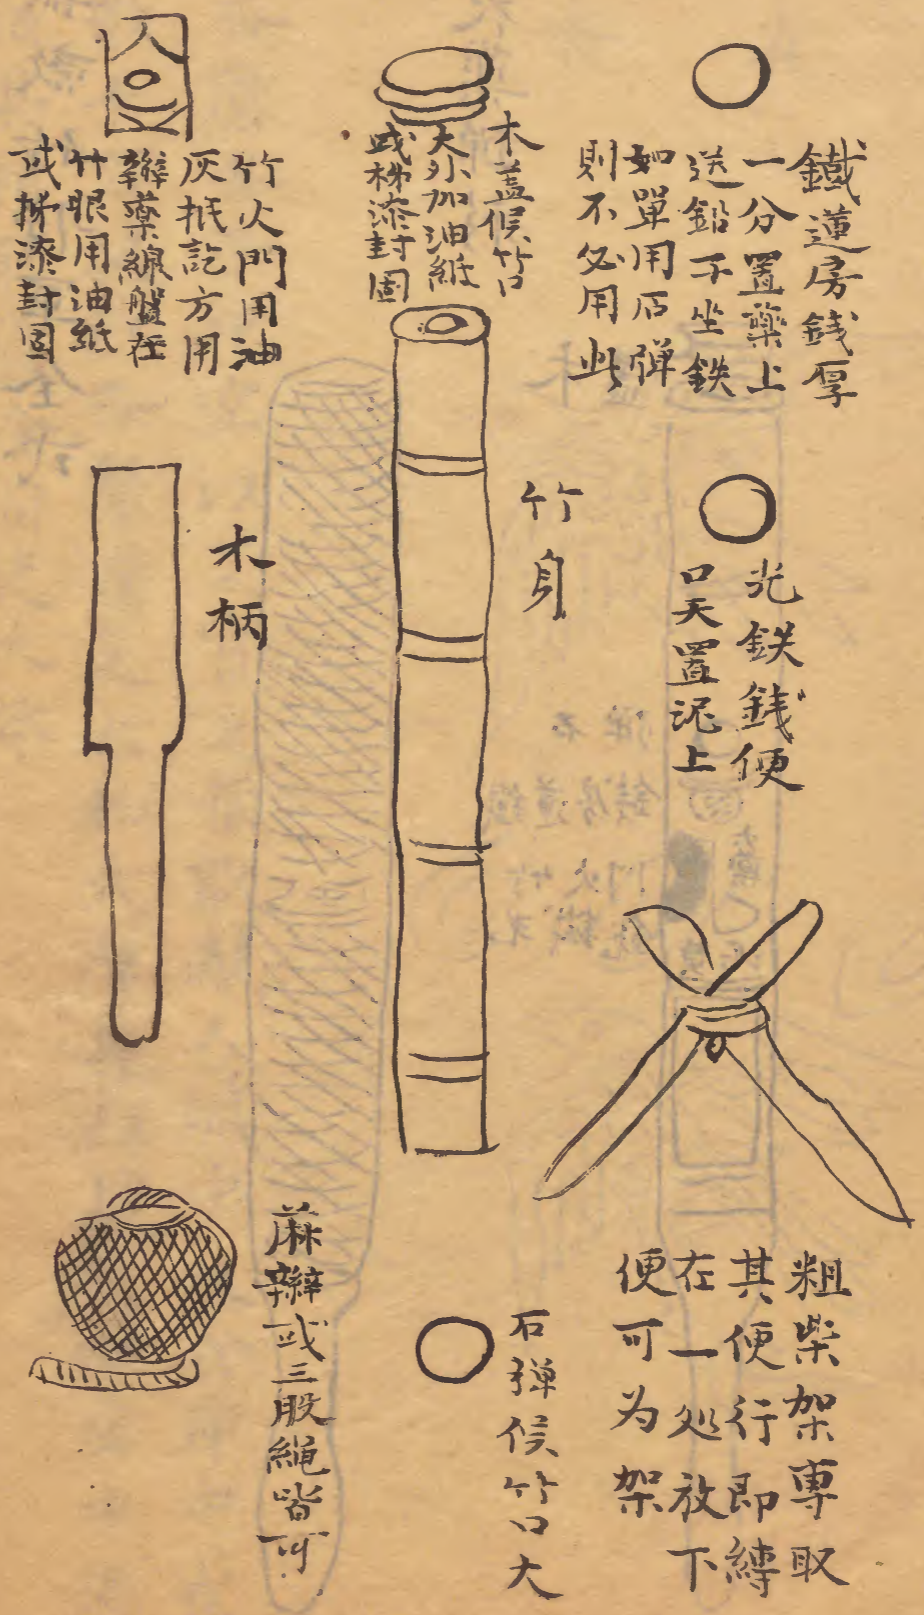 鐵蓮房銭厚
一分置藥上
送鉛子坐鉄
如單用石彈
則不必用此
木蓋候竹口
大外加油紙
或
漆封固
竹火門用油
灰抿訖方用
辮藥線盤在
竹眼用油紙
或
漆封固
光鉄銭便
口天置泥上
竹身
木柄
粗柴架専取
其便行即縛
在一处放下
便可为架
石彈候竹口大
蔴辮或三股繩皆可